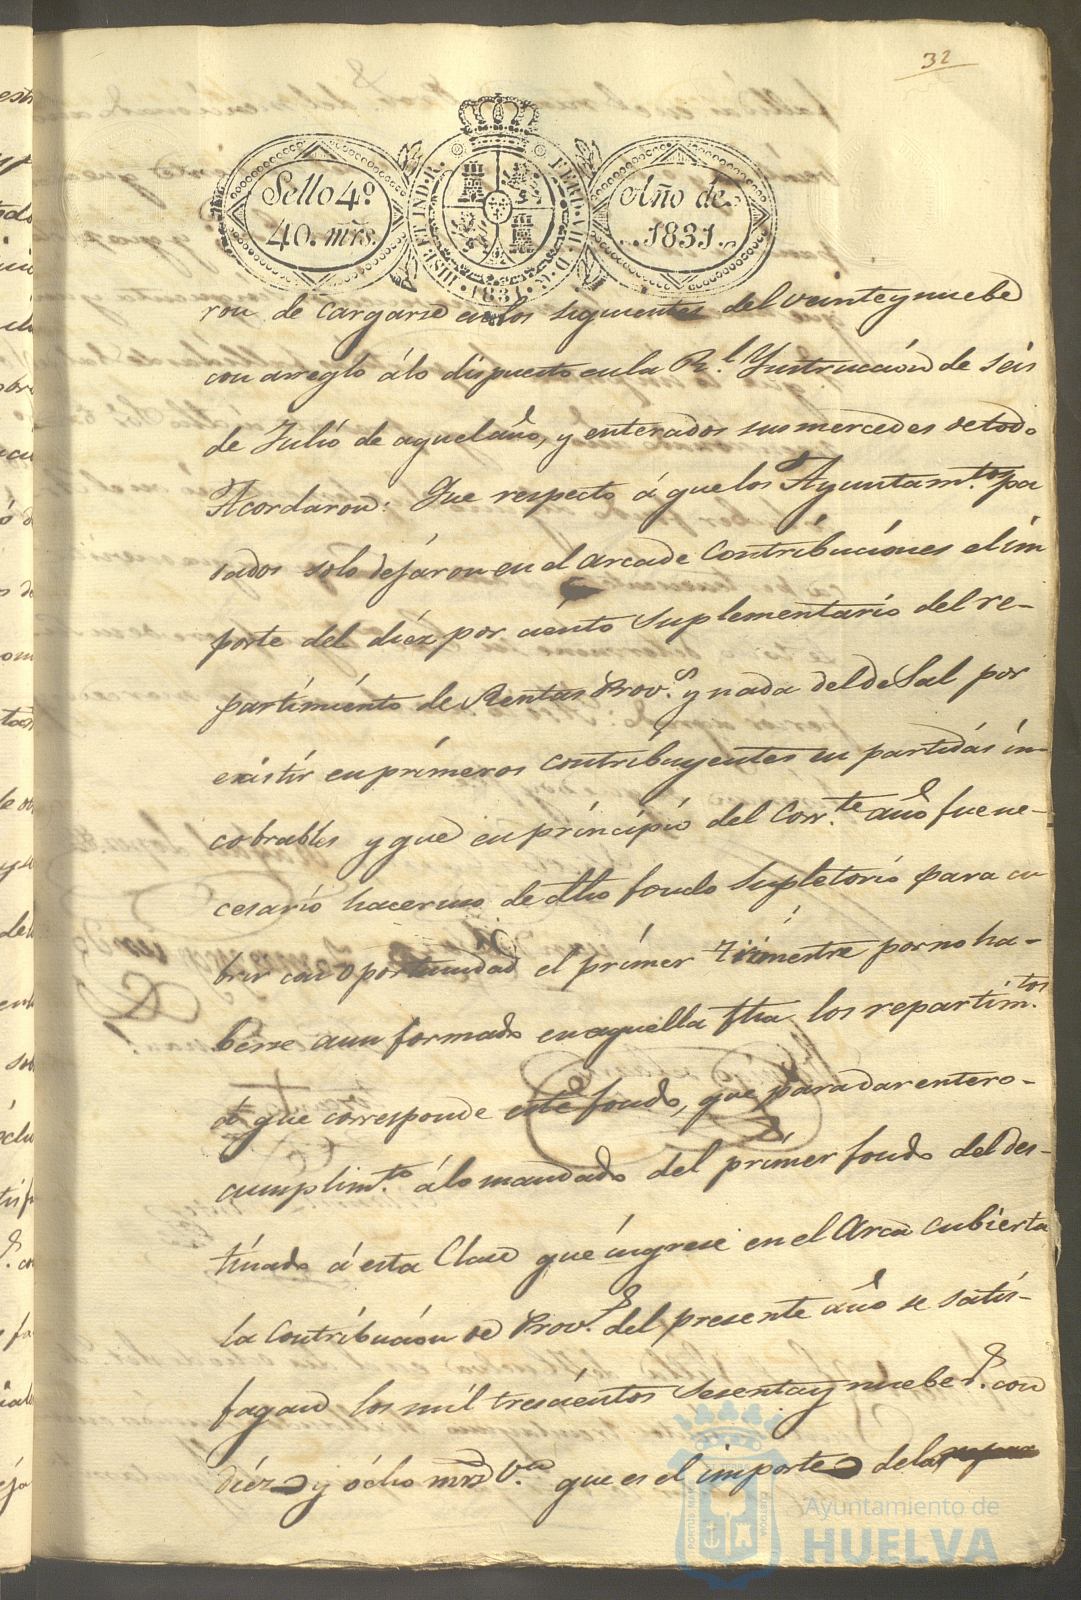 32
Sello 4º
40. mrs.
HISP. ET IND. R. FERD. VII. D. G. 1831.
Año de
1831.
ron de cargarse en los siguientes del veinteynuebe
con arreglo álo dispuesto enla Rl. Ynstrucción de seis
de Julió de aquel año, y enterados sus mercedes de todo
Acordaron: Que respecto á quelos Ayuntamtos. pa
sados solo dejáron en el arcade Contribuciones el im
porte del diéz por ciento Suplementario del re-
partimiento de Rentas Provs. y nada del de Sal por
existir en primeros contribuyentes en partidas in-
cobrables y que en principio del Corrte. año fue ne-
cesario hacer uso de dho fondo Supletorio para cu
brir con oportunidad el primer trimestre por no ha-
berse aun formado en aquella fha los repartimtos.
á que corresponde este fondo, que para dar entero-
cumplimto. álo mandado del primer fondo del des-
tinado á esta Clase que íngrese en el Arca cubierta
la Contribución de Provs. del presente año se satis-
fagan los mil trescientos Sesentay nuebe rs. con
diéz y ócho mrs. Vn. que es el importe de la
Ayuntamiento de
HUELVA